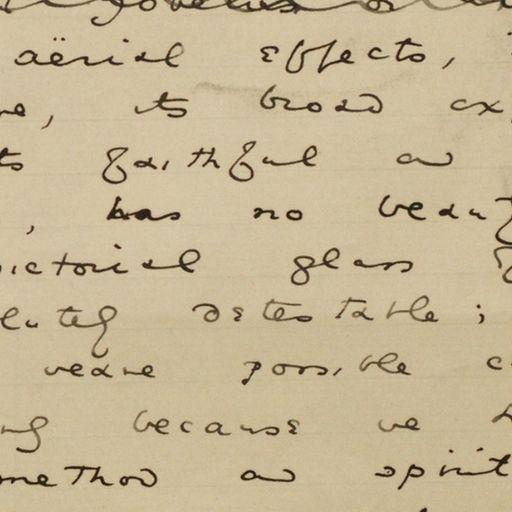 aërial effects,
, its broad ex
ts faithful as
, has no beauty
pictorial glass
lutely detestable;
weave possible c
ng because we
method as spirit